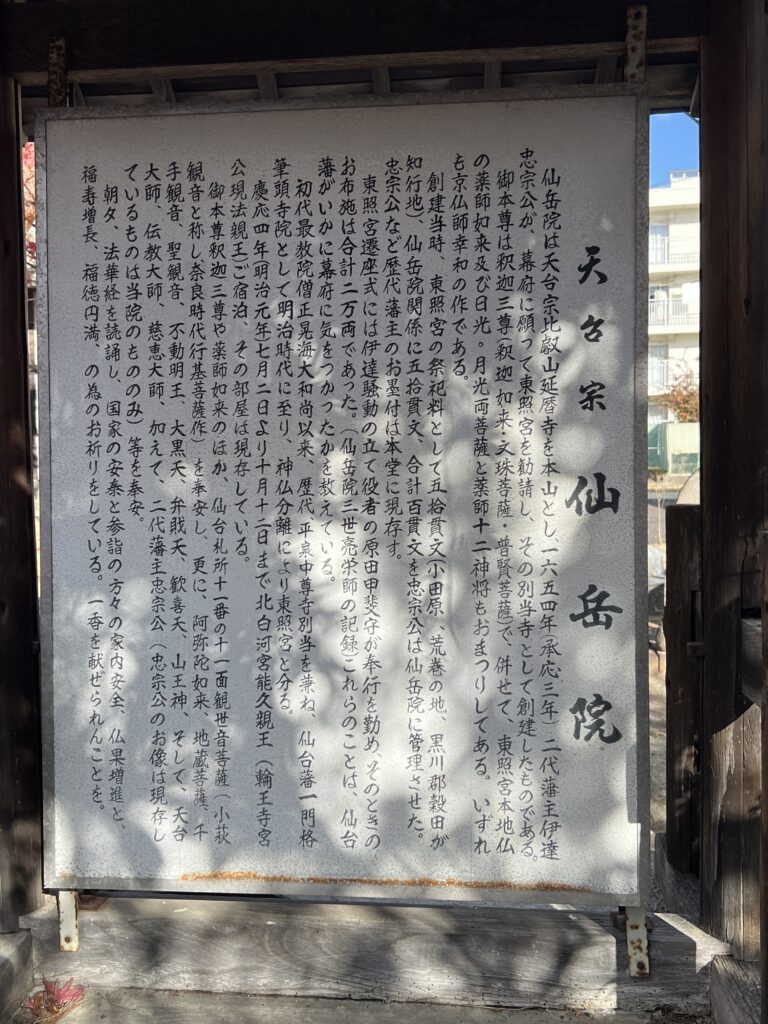 天台宗 仙岳院
仙岳院は天台宗比叡山延暦寺を本山とし、一六五四年(承応三年)二代藩主伊達
忠宗公が、幕府に願って東照宮を勧請し、その別当寺として創建したものである。
御本尊は釈迦三尊(釈迦如来・文珠菩薩・普賢菩薩)で、併せて、東照宮本地仏
の薬師如来及び日光・月光両菩薩と薬師十二神将もおまつりしてある。いずれ
も京仏師幸和の作である。
創建当時、東照宮の祭祀料として五拾貫文(小田原、荒巻の地、黒川郡穀田が
知行地)、仙岳院関係に五拾貫文、合計百貫文を忠宗公は仙岳院に管理させた。
忠宗公など歴代藩主のお墨付は本堂に現存す。
東照宮遷座式には伊達騒動の立て役者の原田甲斐守が奉行を勤め、そのときの
お布施は合計二万両であった。(仙岳院三世亮栄師の記録)これらのことは、仙台
藩がいかに幕府に気をつかったかを教えている。
初代最教院僧正晃海大和尚以来、歴代平泉中尊寺別当を兼ね、仙台藩一門格
筆頭寺院として明治時代に至り、神仏分離により東照宮と分る。
慶応四年明治元年七月二日より十月十二日まで北白河宮能久親王(輪王寺宮
公現法親王)ご宿泊、その部屋は現存している。
御本尊釈迦三尊や薬師如来のほか、仙台札所十一番の十一面観世音菩薩(小萩
観音と称し奈良時代行基菩薩作)を奉安し、更に、阿弥陀如来、地蔵菩薩、千
手観音、聖観音、不動明王、大黒天、弁財天、歓喜天、山王神、そして、天台
大師、伝教大師、慈恵大師、加えて、二代藩主忠宗公(忠宗公のお像は現存し
ているものは当院のもののみ)等を奉安。
朝夕、法華経を読誦し、国家の安泰と参詣の方々の家内安全、仏果増進と、
福寿増長、福徳円満、の為のお祈りをしている。一香を献ぜられんことを。